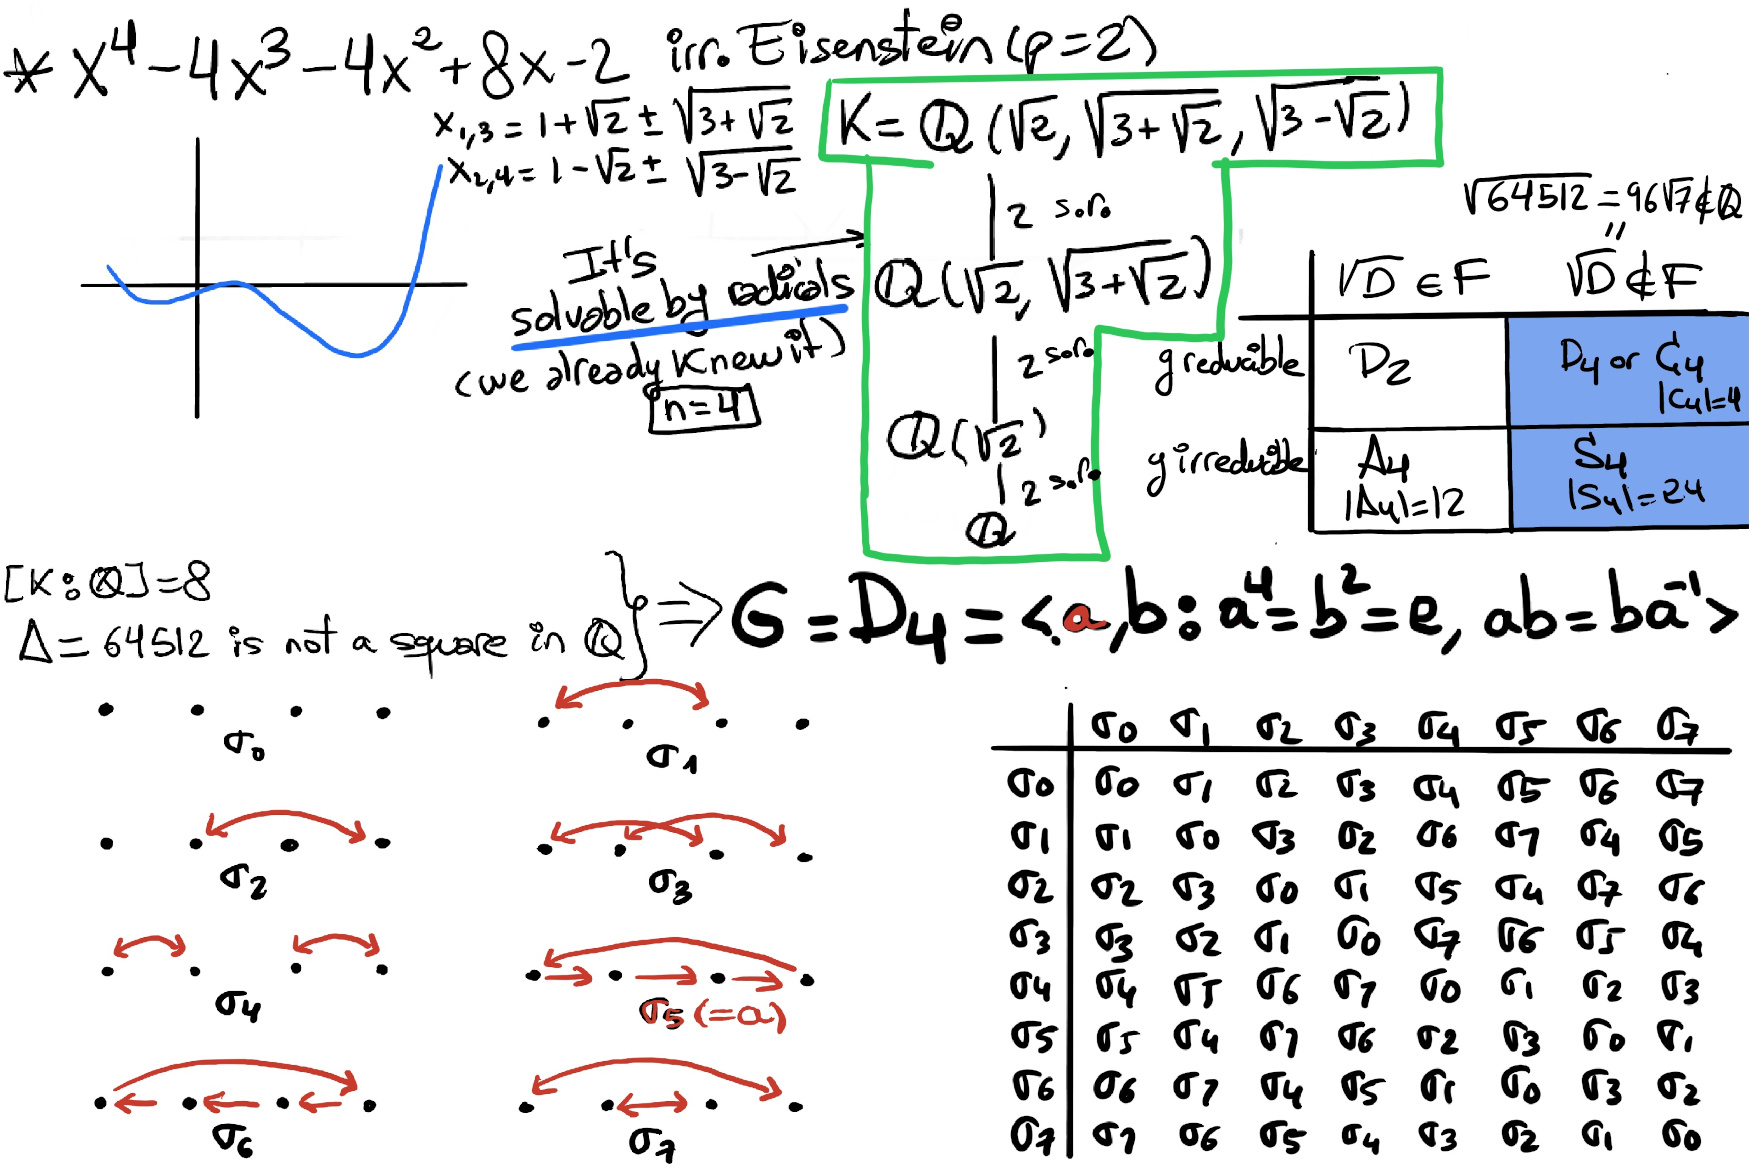 * x⁴-4x³-4x²+8x-2 irr. Eisenstein (p=2)
x₁,₃ = 1+√2 ± √(3+√2)
x₂,₄ = 1-√2 ± √(3-√2)
K = ℚ(√2, √(3+√2), √(3-√2))
| 2 s.r.
ℚ(√2, √(3+√2))
| 2 s.r.
ℚ(√2)
| 2 s.r.
ℚ
It's
solvable by radicals
(we already knew it)
n=4
√64512 = 96√7 ∉ ℚ
"
√D ∈ F √D ∉ F
g reducible D₂ D₄ or C₄
|C₄|=4
g irreducible A₄ S₄
|A₄|=12 |S₄|=24
[K:ℚ]=8
Δ = 64512 is not a square in ℚ
⇒ G = D₄ = <a,b : a⁴=b²=e, ab=ba⁻¹>
σ₀ σ₁
σ₂ σ₃
σ₄ σ₅ (=a)
σ₆ σ₇
σ₀ σ₁ σ₂ σ₃ σ₄ σ₅ σ₆ σ₇
σ₀ σ₀ σ₁ σ₂ σ₃ σ₄ σ₅ σ₆ σ₇
σ₁ σ₁ σ₀ σ₃ σ₂ σ₆ σ₇ σ₄ σ₅
σ₂ σ₂ σ₃ σ₀ σ₁ σ₅ σ₄ σ₇ σ₆
σ₃ σ₃ σ₂ σ₁ σ₀ σ₇ σ₆ σ₅ σ₄
σ₄ σ₄ σ₅ σ₆ σ₇ σ₀ σ₁ σ₂ σ₃
σ₅ σ₅ σ₄ σ₇ σ₆ σ₂ σ₃ σ₀ σ₁
σ₆ σ₆ σ₇ σ₄ σ₅ σ₁ σ₀ σ₃ σ₂
σ₇ σ₇ σ₆ σ₅ σ₄ σ₃ σ₂ σ₁ σ₀